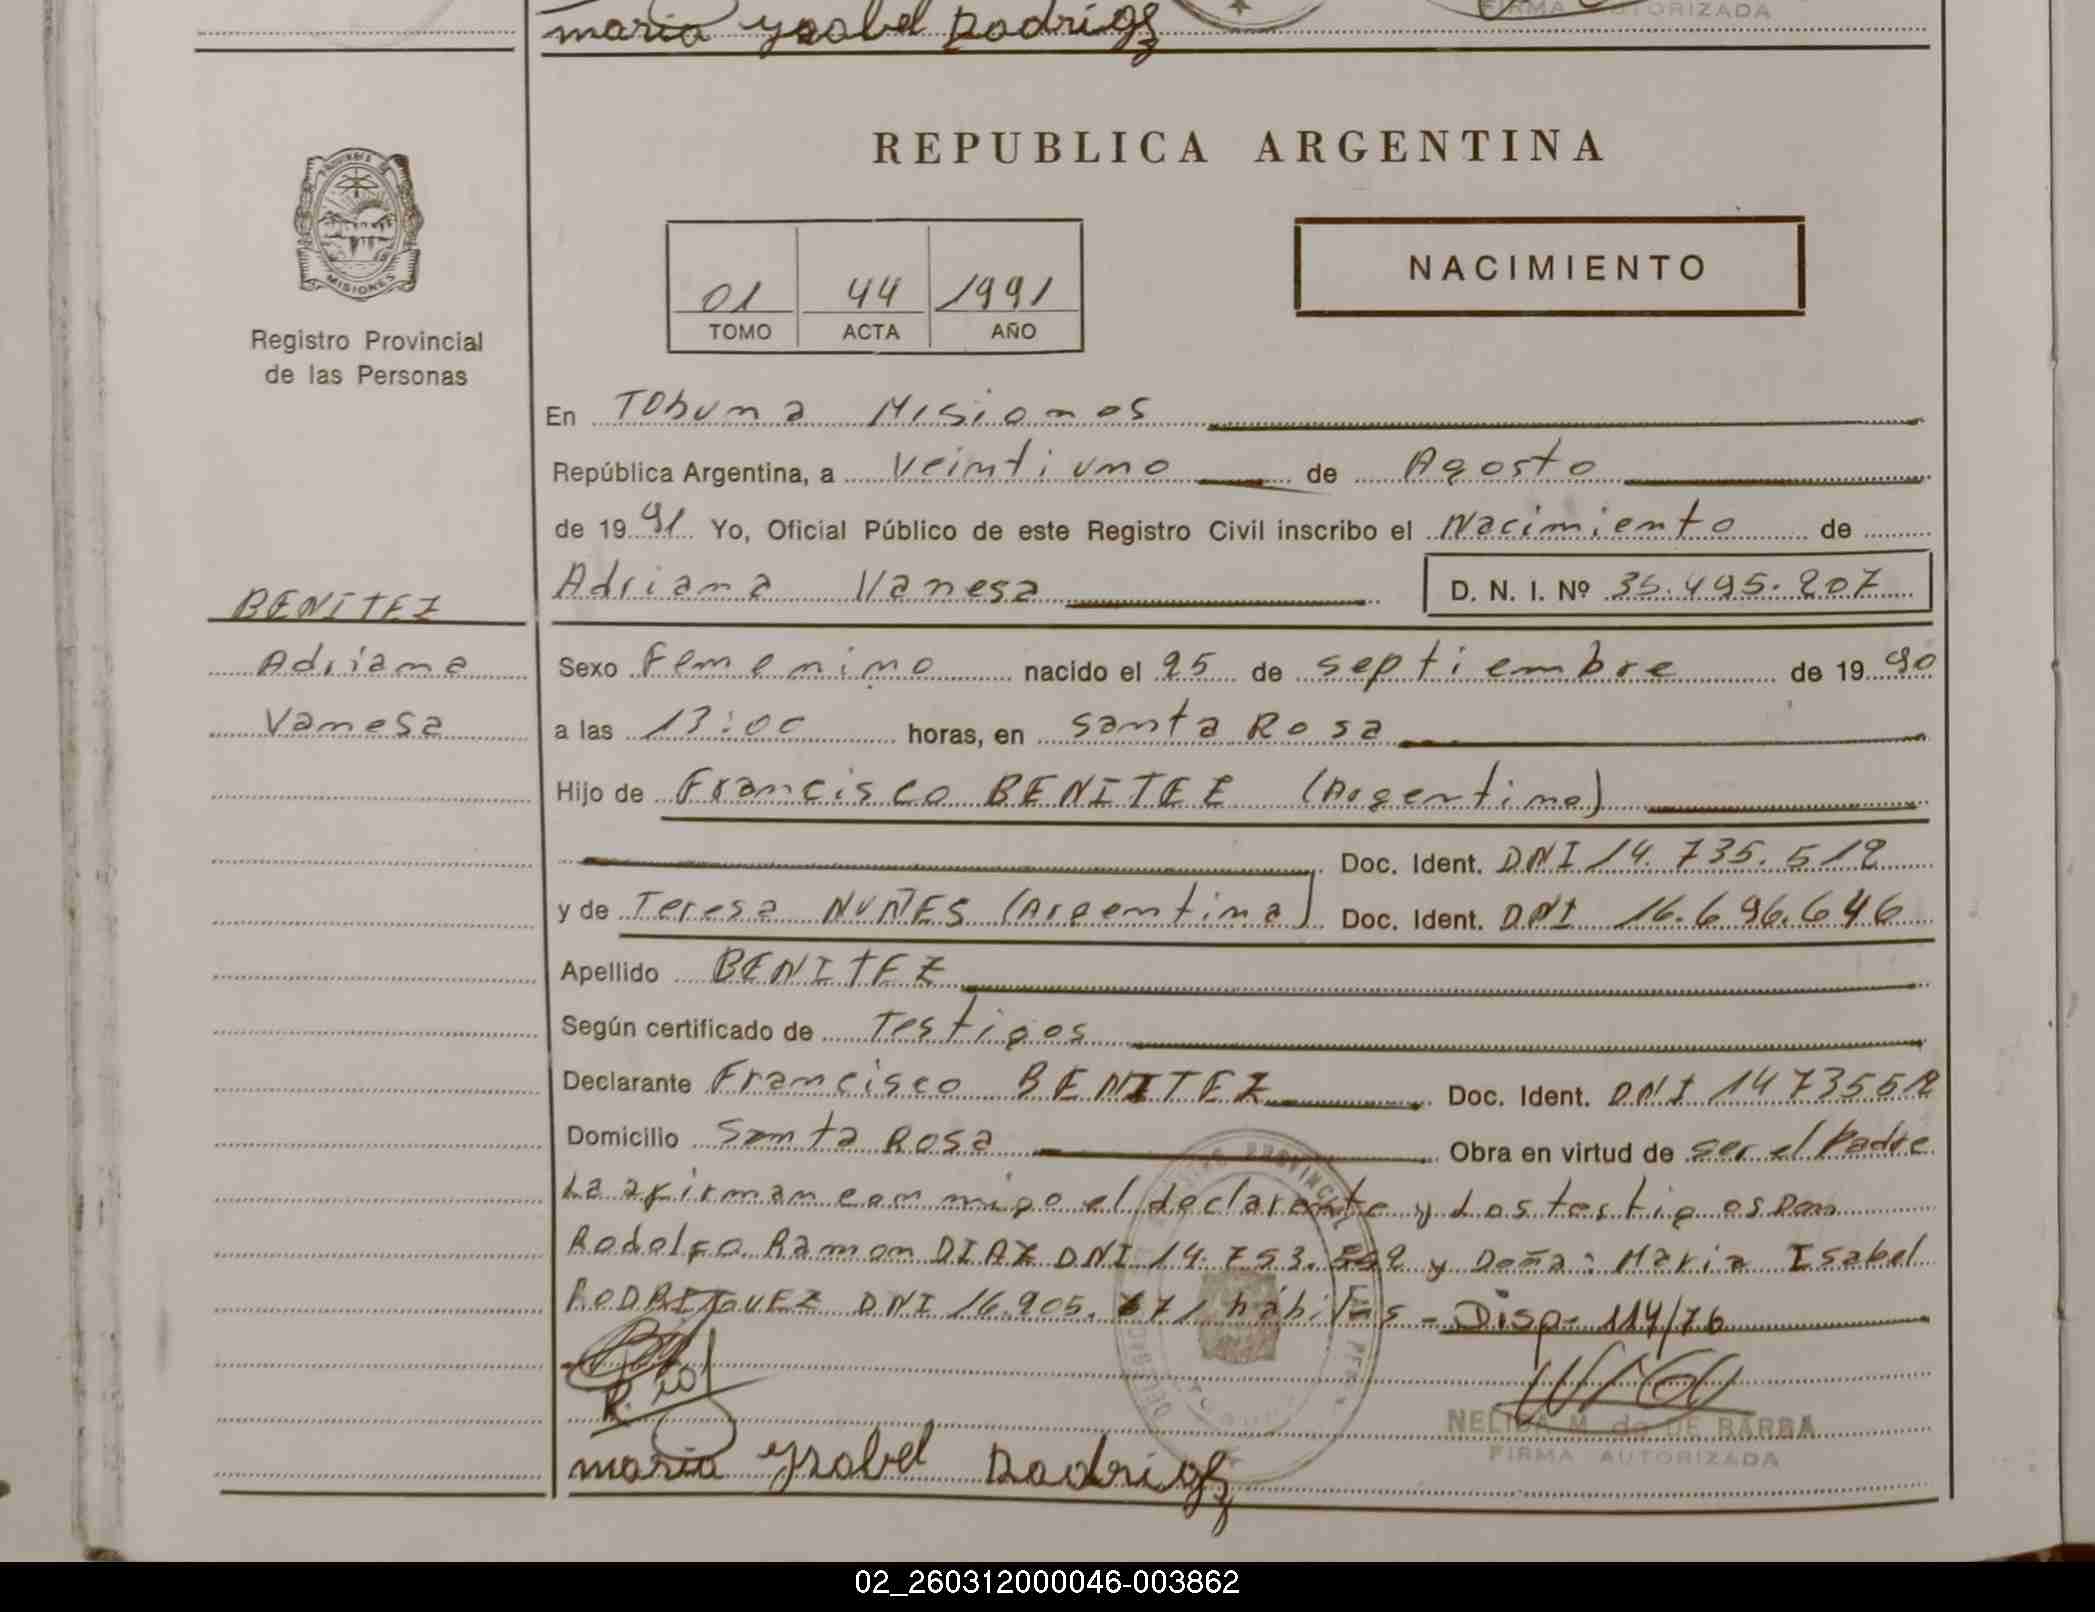 maria ysabel Rodrigz
FIRMA AUTORIZADA
REPUBLICA ARGENTINA
MISIONES
NACIMIENTO
01 44 1991
TOMO ACTA AÑO
Registro Provincial
de las Personas
En Tobuna Misiones
República Argentina, a Veintiuno de Agosto
de 1991 Yo, Oficial Público de este Registro Civil inscribo el Nacimiento de
Adriana Vanesa D. N. I. Nº 35.495.207
BENITEZ
Adriana
Vanesa
Sexo Femenino nacido el 25 de septiembre de 1990
a las 13:00 horas, en Santa Rosa
Hijo de Francisco BENITEZ (Argentino)
Doc. Ident. DNI 14.735.512
y de Teresa NUÑES (Argentina) Doc. Ident. DNI 16.696.646
Apellido BENITEZ
Según certificado de Testigos
Declarante Francisco BENITEZ Doc. Ident. DNI 14735512
Domicilio Santa Rosa Obra en virtud de ser el Padre
La afirman con migo el declarante y Los testigos Don
Rodolfo Ramon DIAZ DNI 14.753. y Doña: Maria Isabel
RODRIGUEZ DNI 16.905. hábiles - Disp- 114/76
NELIDA M. de DE BARBA
FIRMA AUTORIZADA
maria ysabel Rodrigz
02_260312000046-003862